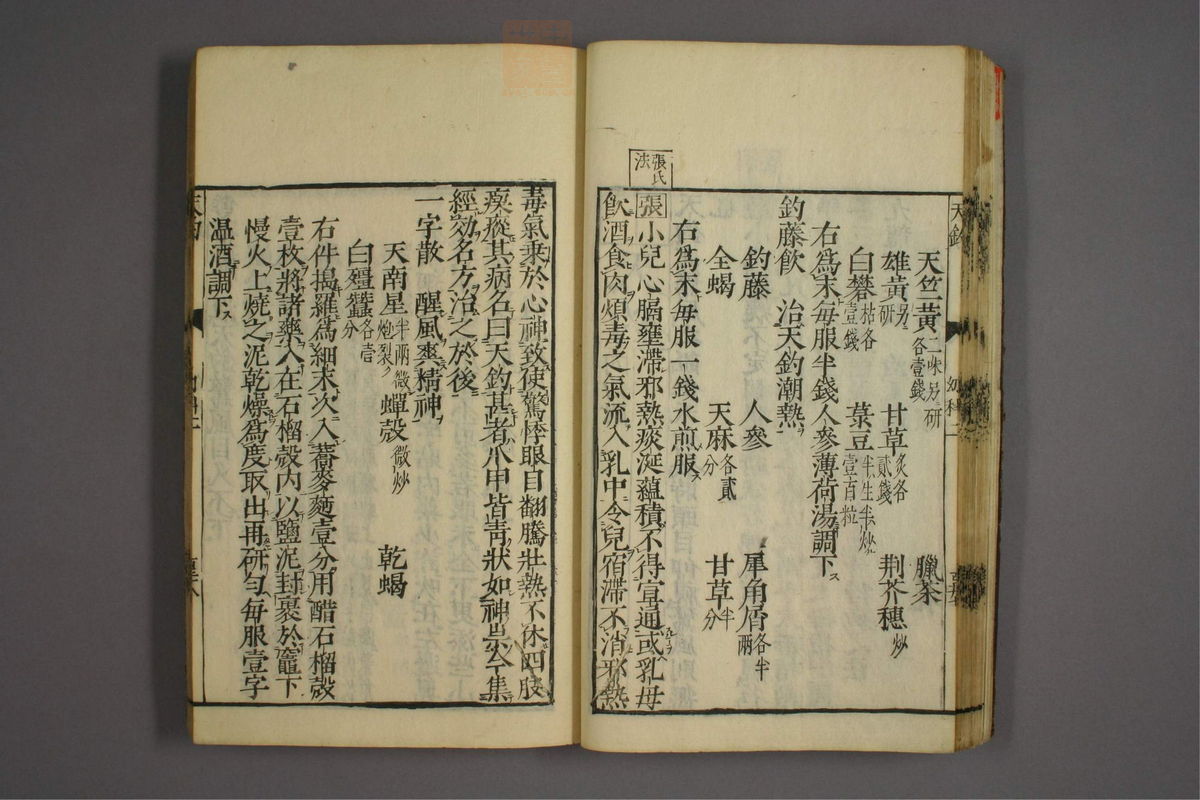 天竺黃二味另研各壹錢　臘茶
雄黃另研　甘草炙各貳錢　荆芥穗炒
白礬枯各壹錢　菉豆半生半炒壹百粒
右爲末每服半錢人參薄荷湯調下
釣藤飲　治天釣潮熱
釣藤　人參　犀角屑各半兩
全蝎　天麻各貳分　甘草半分
右爲末每服一錢水煎服
張氏法
張小兒心膈壅滯邪熱痰涎蘊積不得宣通或乳母
飲酒食肉煩毒之氣流入乳中令兒宿滯不消邪熱
毒氣乘於心神致使驚悸眼目翻騰壯熱不休四肢
瘈瘲其病名曰天釣甚者爪甲皆靑狀如神祟今集
經効名方治之於後
一字散　醒風爽精神
天南星半兩微炮裂　蟬殼微炒　乾蝎
白殭蠶各壹分
右件搗羅爲細末次入蕎麥麵壹分用醋石榴殼
壹枚將諸藥入在石榴殼內以鹽泥封裹於竈下
慢火上燒之泥乾燥爲度取出再研勻每服壹字
温酒調下